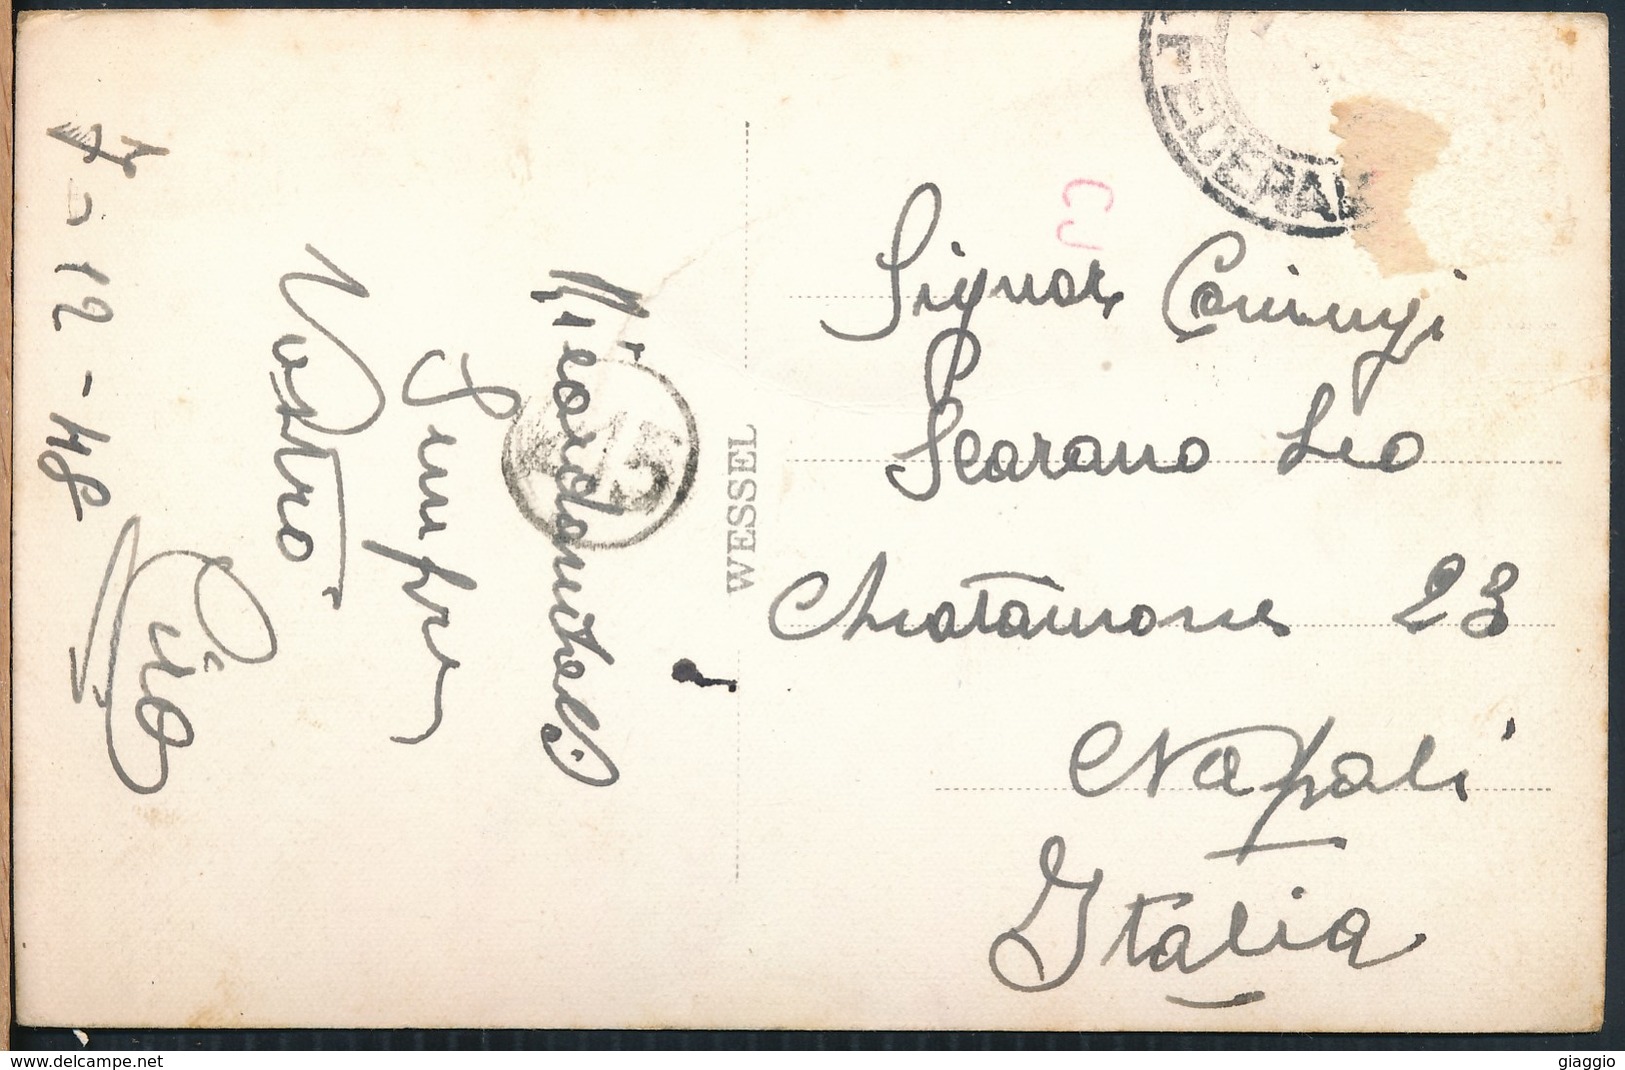 Ricordomitelo
Sempre
Vostro
Ciro
7-12-48
WESSEL
FEDERAL
15
CJ
Signor
Scarano Leo
Chiatamone 23
Napoli
Italia
www.delcampe.net
giaggio